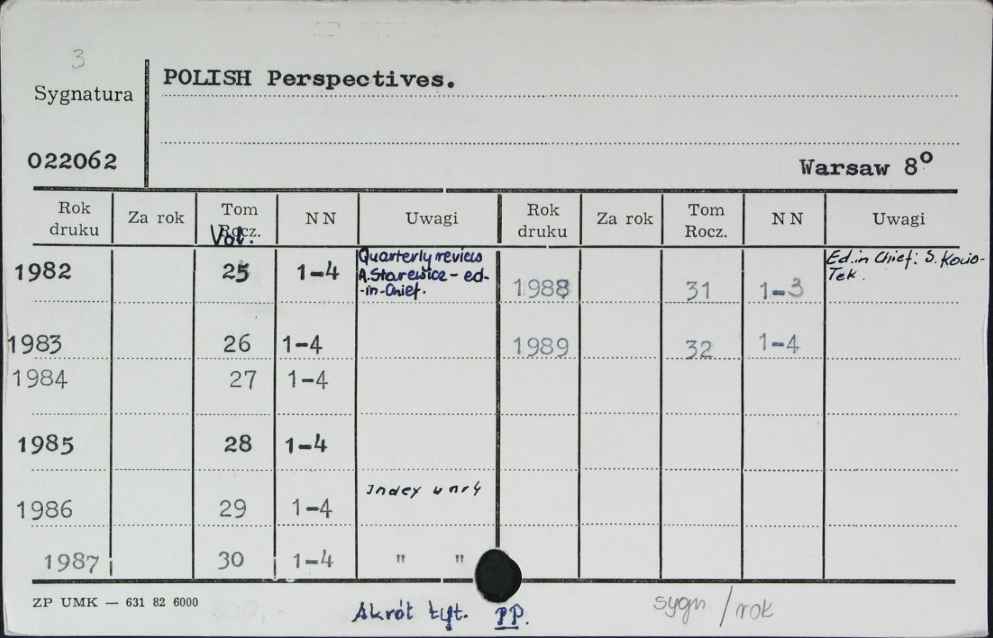 3
Sygnatura
POLISH Perspectives.
022062
Warsaw 8°
Rok druku Za rok Tom Rocz. NN Uwagi Rok druku Za rok Tom Rocz. NN Uwagi
Vol.
1982 25 1-4 Quarterly review
A. Starewicz - ed-
-in-Chief.
1988 31 1-3 Ed. in Chief: S. Kowo-
Tek.
1983 26 1-4 1989 32 1-4
1984 27 1-4
1985 28 1-4
1986 29 1-4 Index w nr 4
1987 30 1-4 " "
ZP UMK — 631 82 6000
Skrót tyt. PP.
sygn/rok